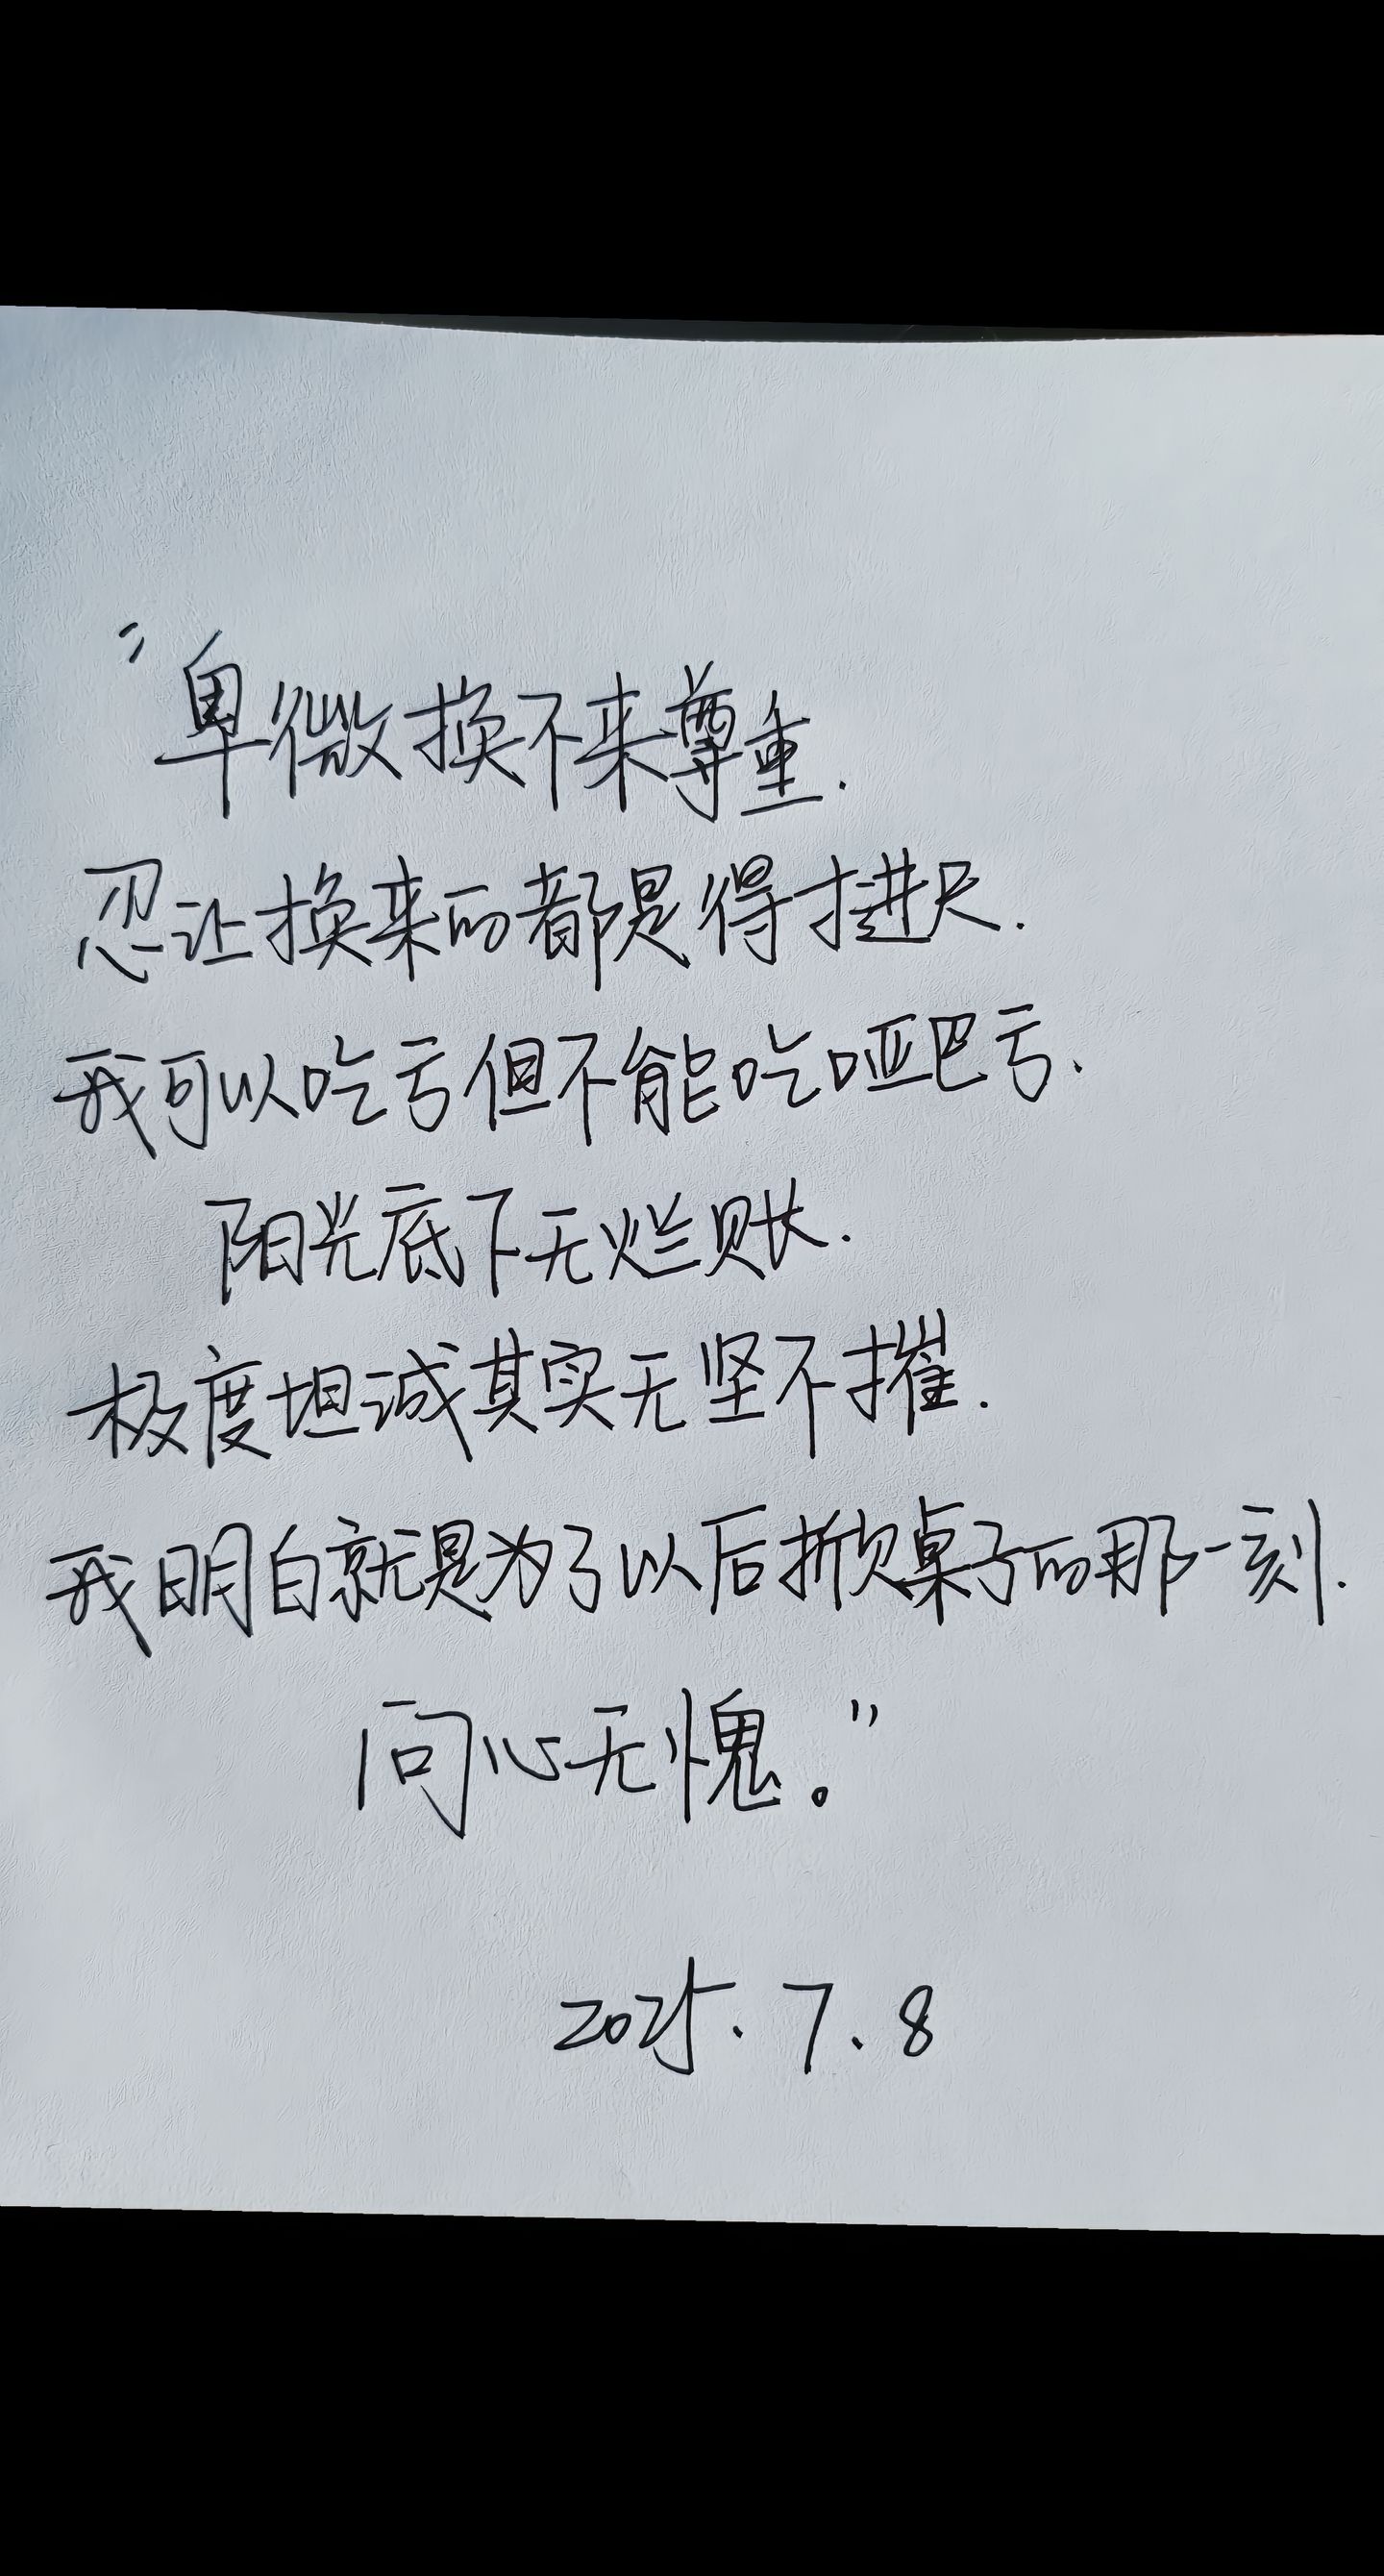 "卑微换不来尊重.
忍让换来的都是得寸进尺.
我可以吃亏但不能吃哑巴亏.
阳光底下无烂账.
极度坦诚其实无坚不摧.
我明白就是为了以后掀桌子的那一刻.
问心无愧。"
2025.7.8